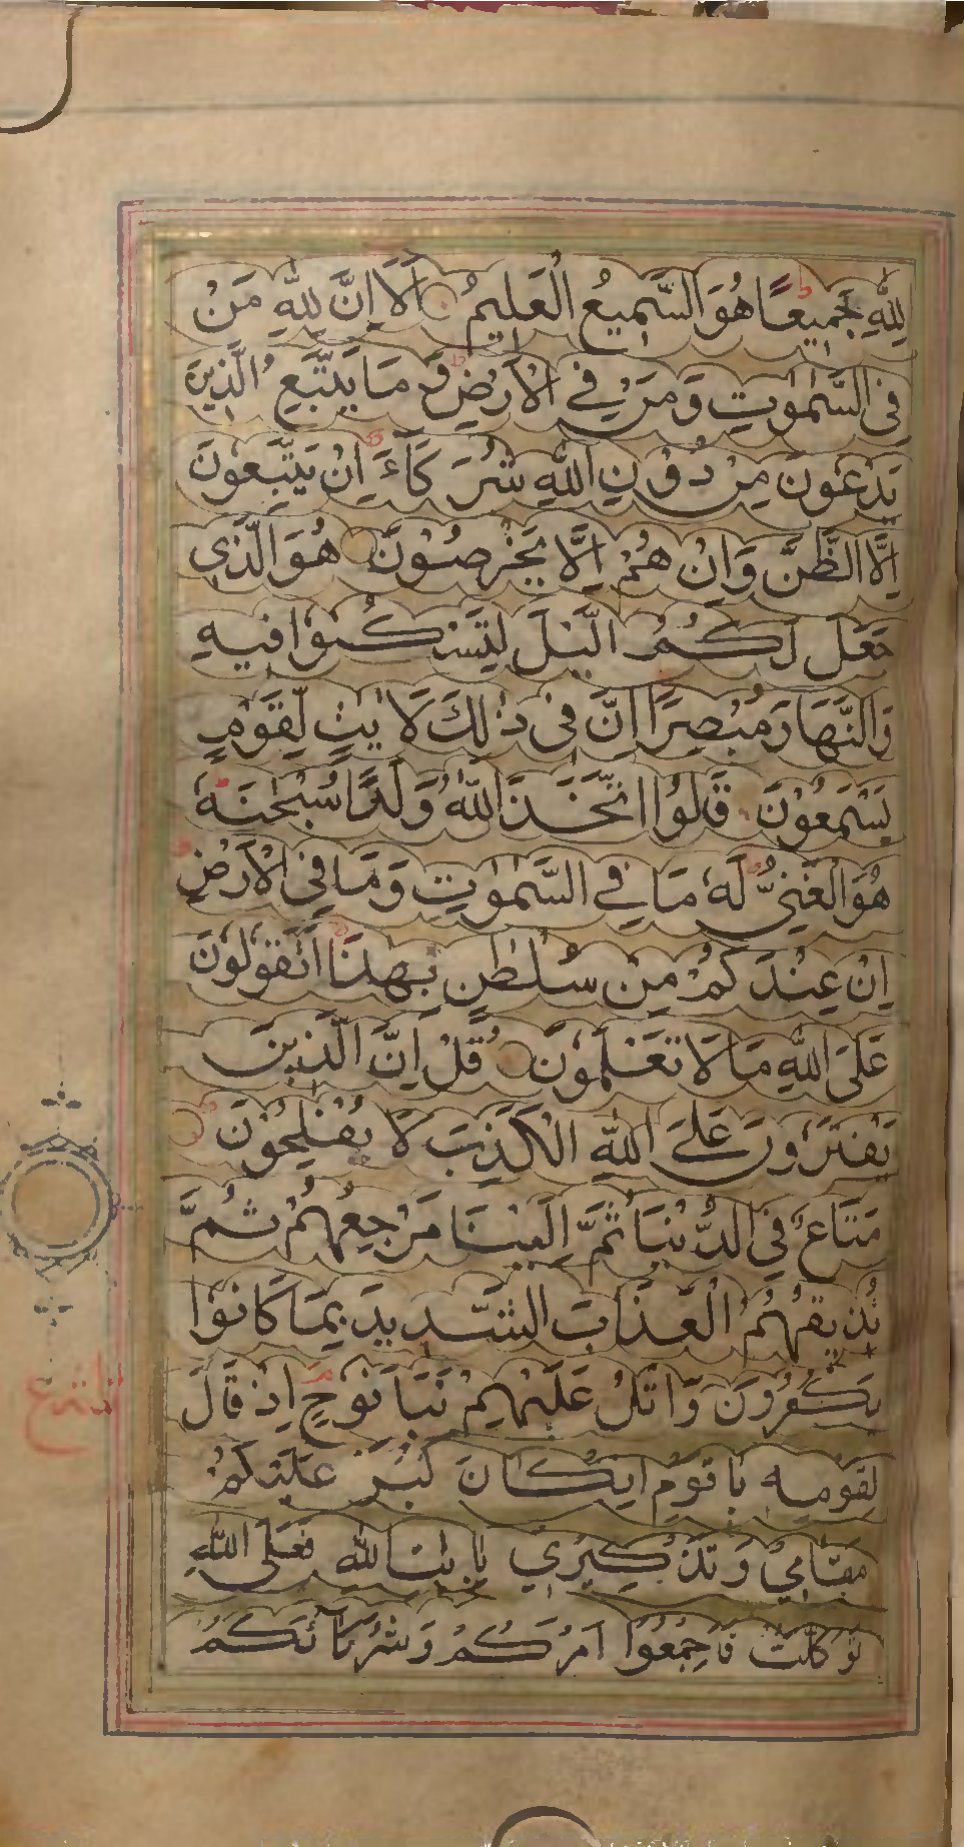 لِلّٰهِ جَمِيعًا هُوَ السَّمِيعُ الْعَلِيمُ اَلَا اِنَّ لِلّٰهِ مَنْ
فِى السَّمٰوٰتِ وَمَنْ فِي الْاَرْضِ وَمَا يَتَّبِعُ الَّذِينَ
يَدْعُونَ مِنْ دُوْنِ اللّٰهِ شُرَكَآءَ اِنْ يَتَّبِعُونَ
اِلَّا الظَّنَّ وَاِنْ هُمْ اِلَّا يَخْرُصُوْنَ هُوَ الَّذِى
جَعَلَ لَكُمُ الَّيْلَ لِتَسْكُنُوْا فِيهِ
وَالنَّهَارَ مُبْصِرًا اِنَّ فِى ذٰلِكَ لَاٰيٰتٍ لِّقَوْمٍ
يَسْمَعُوْنَ قَالُوا اتَّخَذَ اللّٰهُ وَلَدًا سُبْحٰنَهٗ
هُوَ الْغَنِيُّ لَهٗ مَا فِي السَّمٰوٰتِ وَمَا فِى الْاَرْضِ
اِنْ عِنْدَكُمْ مِنْ سُلْطٰنٍ بِهٰذَا اَتَقُوْلُوْنَ
عَلَى اللّٰهِ مَا لَا تَعْلَمُوْنَ قُلْ اِنَّ الَّذِينَ
يَفْتَرُوْنَ عَلَى اللّٰهِ الْكَذِبَ لَا يُفْلِحُوْنَ
مَتَاعٌ فِى الدُّنْيَا ثُمَّ اِلَيْنَا مَرْجِعُهُمْ ثُمَّ
نُذِيقُهُمُ الْعَذَابَ الشَّدِيدَ بِمَا كَانُوْا
يَكْفُرُوْنَ وَاتْلُ عَلَيْهِمْ نَبَاَ نُوْحٍ اِذْ قَالَ
لِقَوْمِهِ يَا قَوْمِ اِنْ كَانَ كَبُرَ عَلَيْكُمْ
مَقَامِيْ وَتَذْكِيْرِي بِاٰيَاتِ اللّٰهِ فَعَلَى اللّٰهِ
تَوَكَّلْتُ فَاَجْمِعُوْا اَمْرَكُمْ وَشُرَكَآئَكُمْ